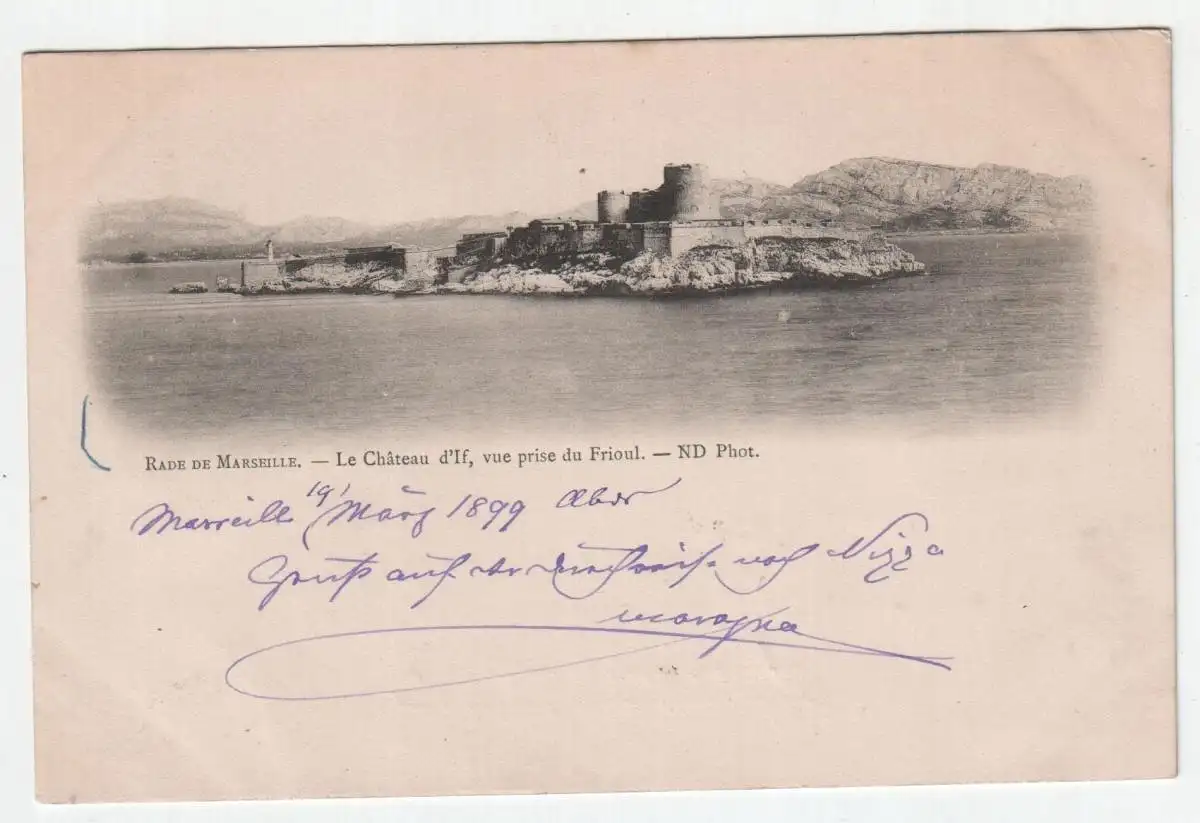 RADE DE MARSEILLE. — Le Château d'If, vue prise du Frioul. — ND Phot.
Marseille 19/ März 1899
Gruß auf der Durchreise nach Nizza